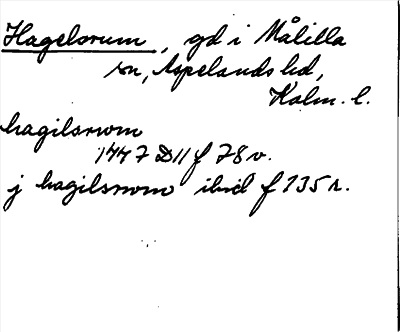 Hagelsrum, gd i Målilla
sn, Aspelands hd,
Kalm. l.
hagilsrwm
1447 D11 f 78 v.
j hagilsrwm ibid f 135 r.